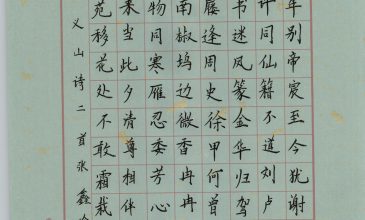 年别帝宸至今犹谢
许同仙籍不道刘卢
书迷凤篆金华归驾
屦逢周史徐甲何曾
南椒坞边微香冉冉
物同寒雁忍委芳心
来当此夕清尊相伴
苑移花处不敢霜栽
义山诗二首张鑫